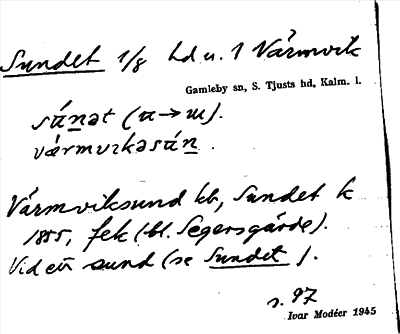 Sundet 1/8 hd u. 1 Värmvik
Gamleby sn, S. Tjusts hd, Kalm. l.
súnət (u→ɯ).
vǽrmvɪkəsún.
Värmviksund kb, Sundet k
1855, fek (bl. Segersgärde).
Vid ett sund (se Sundet).
s. 97
Ivar Modéer 1945